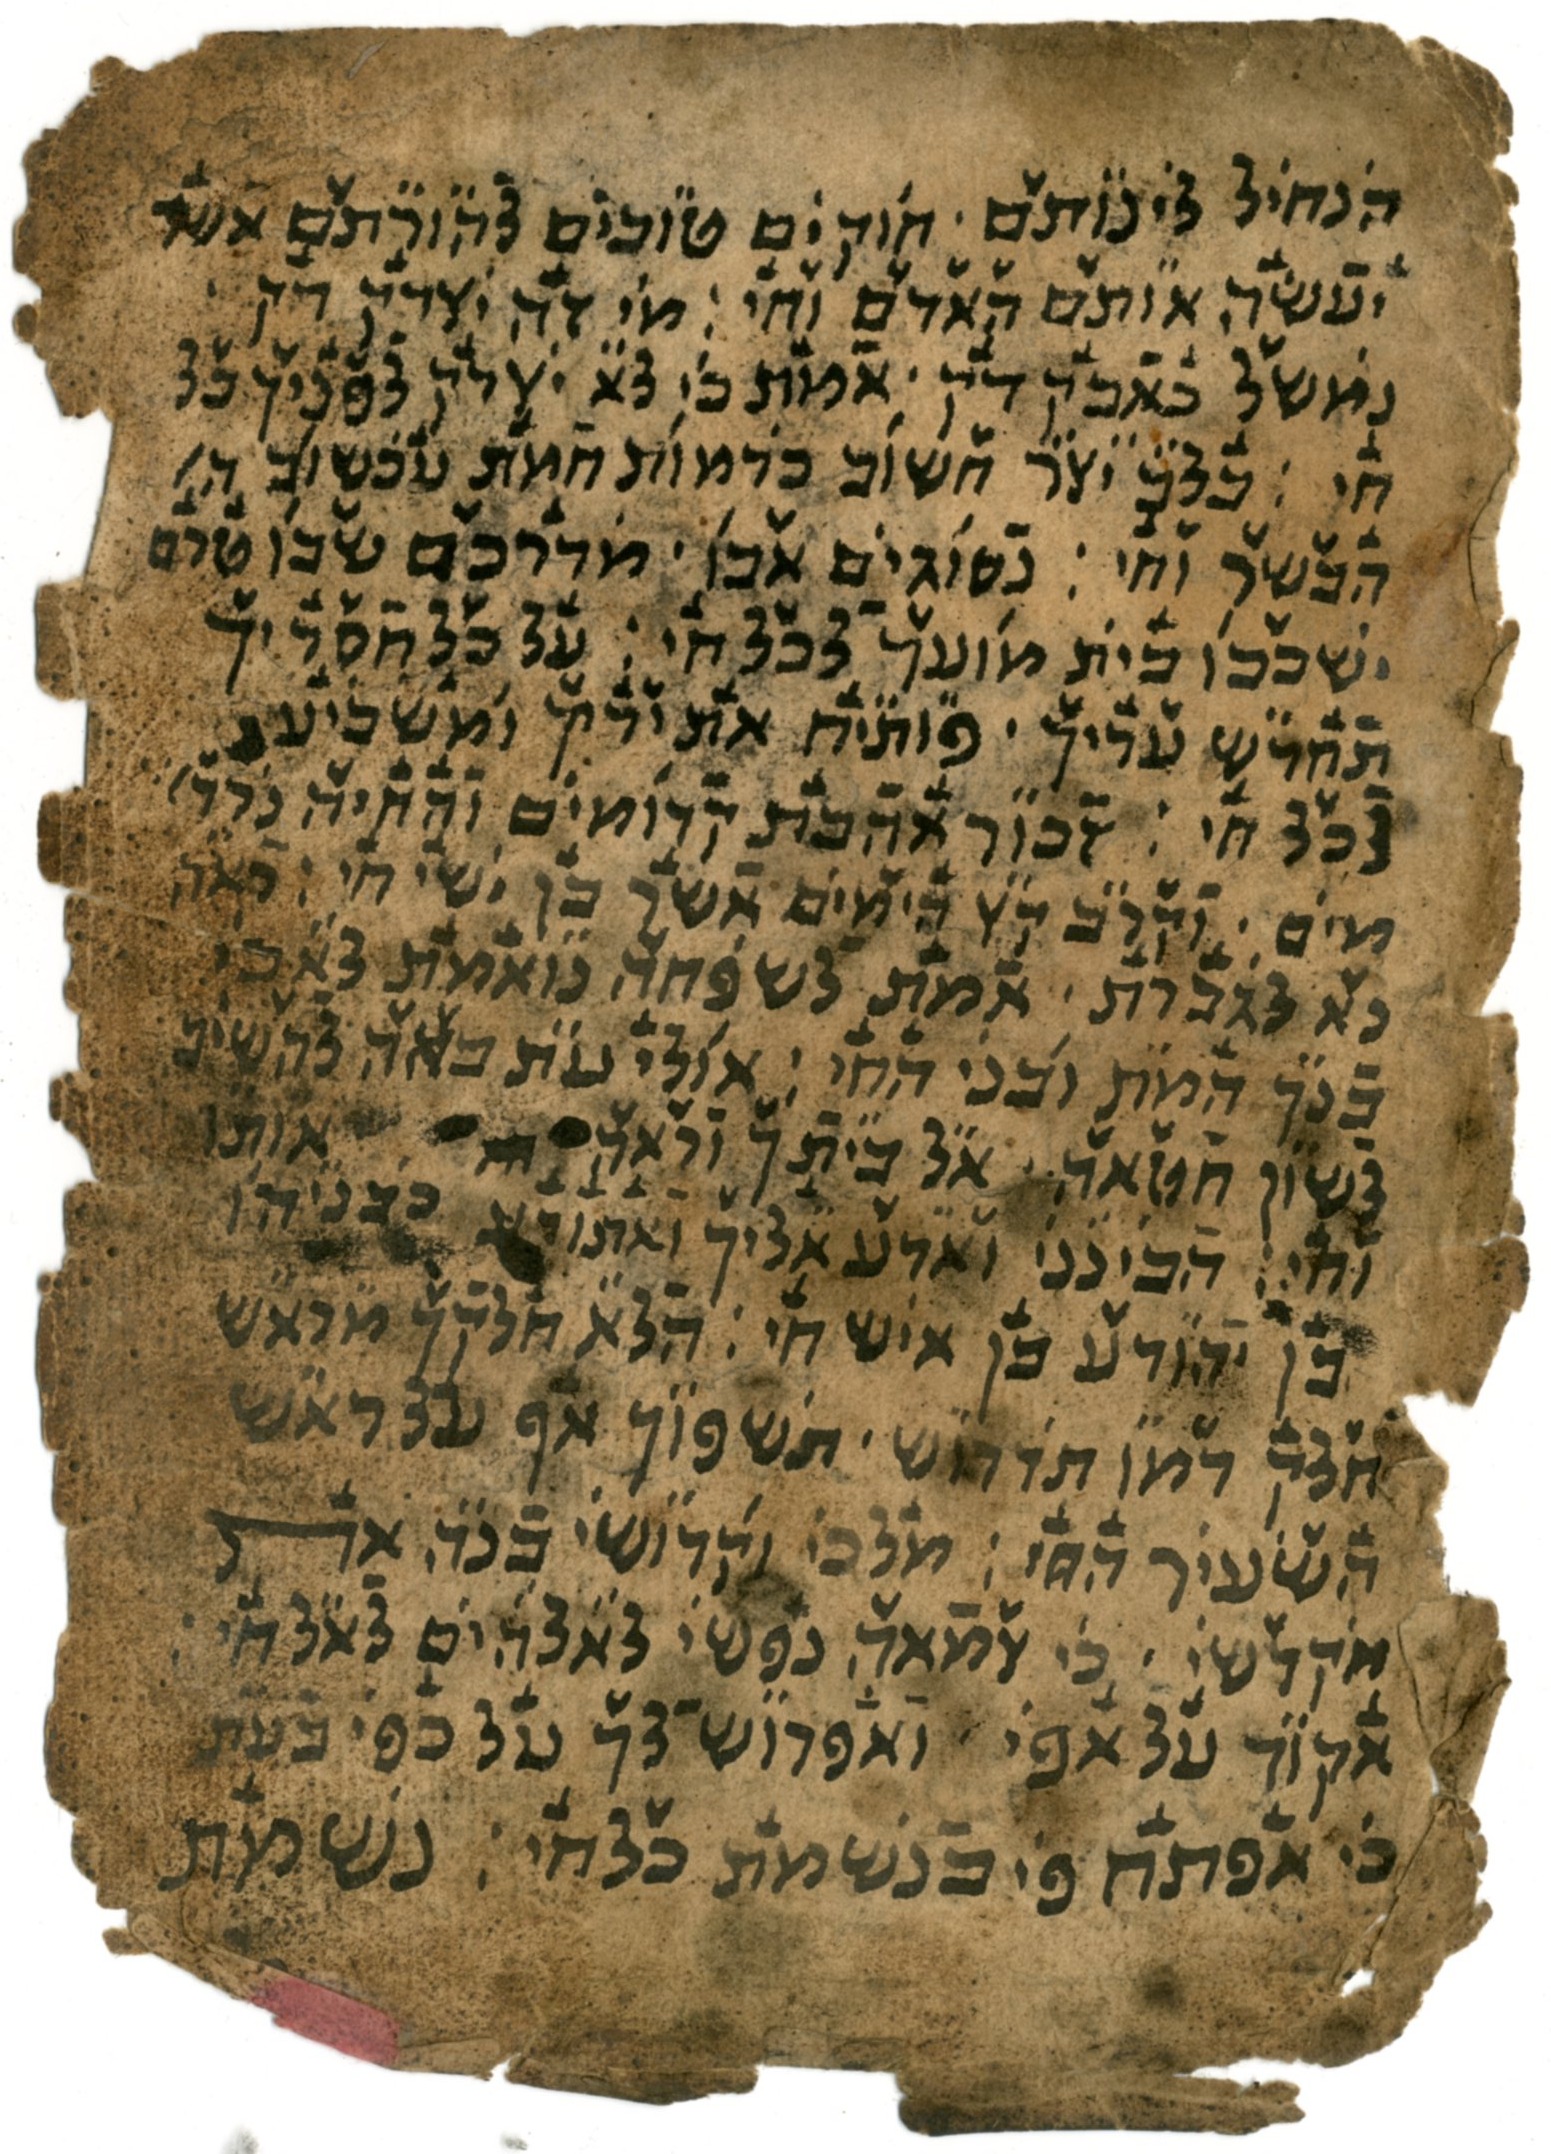 הנחיל לינותם · חוקים טובים להורתם אשר
יעשה אותם האדם וחי : מי זה יצדק דק ·
נמשל כאבק דק · אמת כי לא יצדק לפניך כל
חי : בלב יצר חשוב כדמות חמת עכשוב ה׳
הבשר וחי : נסוגים אבו · מדרכם שבו טרם
ישכבו בית מועד לכל חי : על כל חסדיך
תחדש עדיך · פותיח את ידך ומשביע
לכל חי : זכור אהבת קדומים והחיה נרד׳
מים · וקרב קץ הימים אשר בן ישי חי : ראה
נא לגברת · אמת לשפחה נואמת לא כי
בנך המת ובני החי : אולי עת באה להשיב
לשון חטאה · אל ביתך וראה אותו
וחי : הביננו ואדע אליך ואתודע כבניהו
בן יהודע בן איש חי : הלא חלקך מראש
חלך דמו תדרוש · תשפוך אף על ראש
השעיר החי : מלכי וקדושי בנה את
מקדשי · כי צמאה נפשי לאלהים לאל חי :
אקוד על אפי · ואפרוש לך על כפי בעת
כי אפתח פי בנשמת כל חי : נשמת